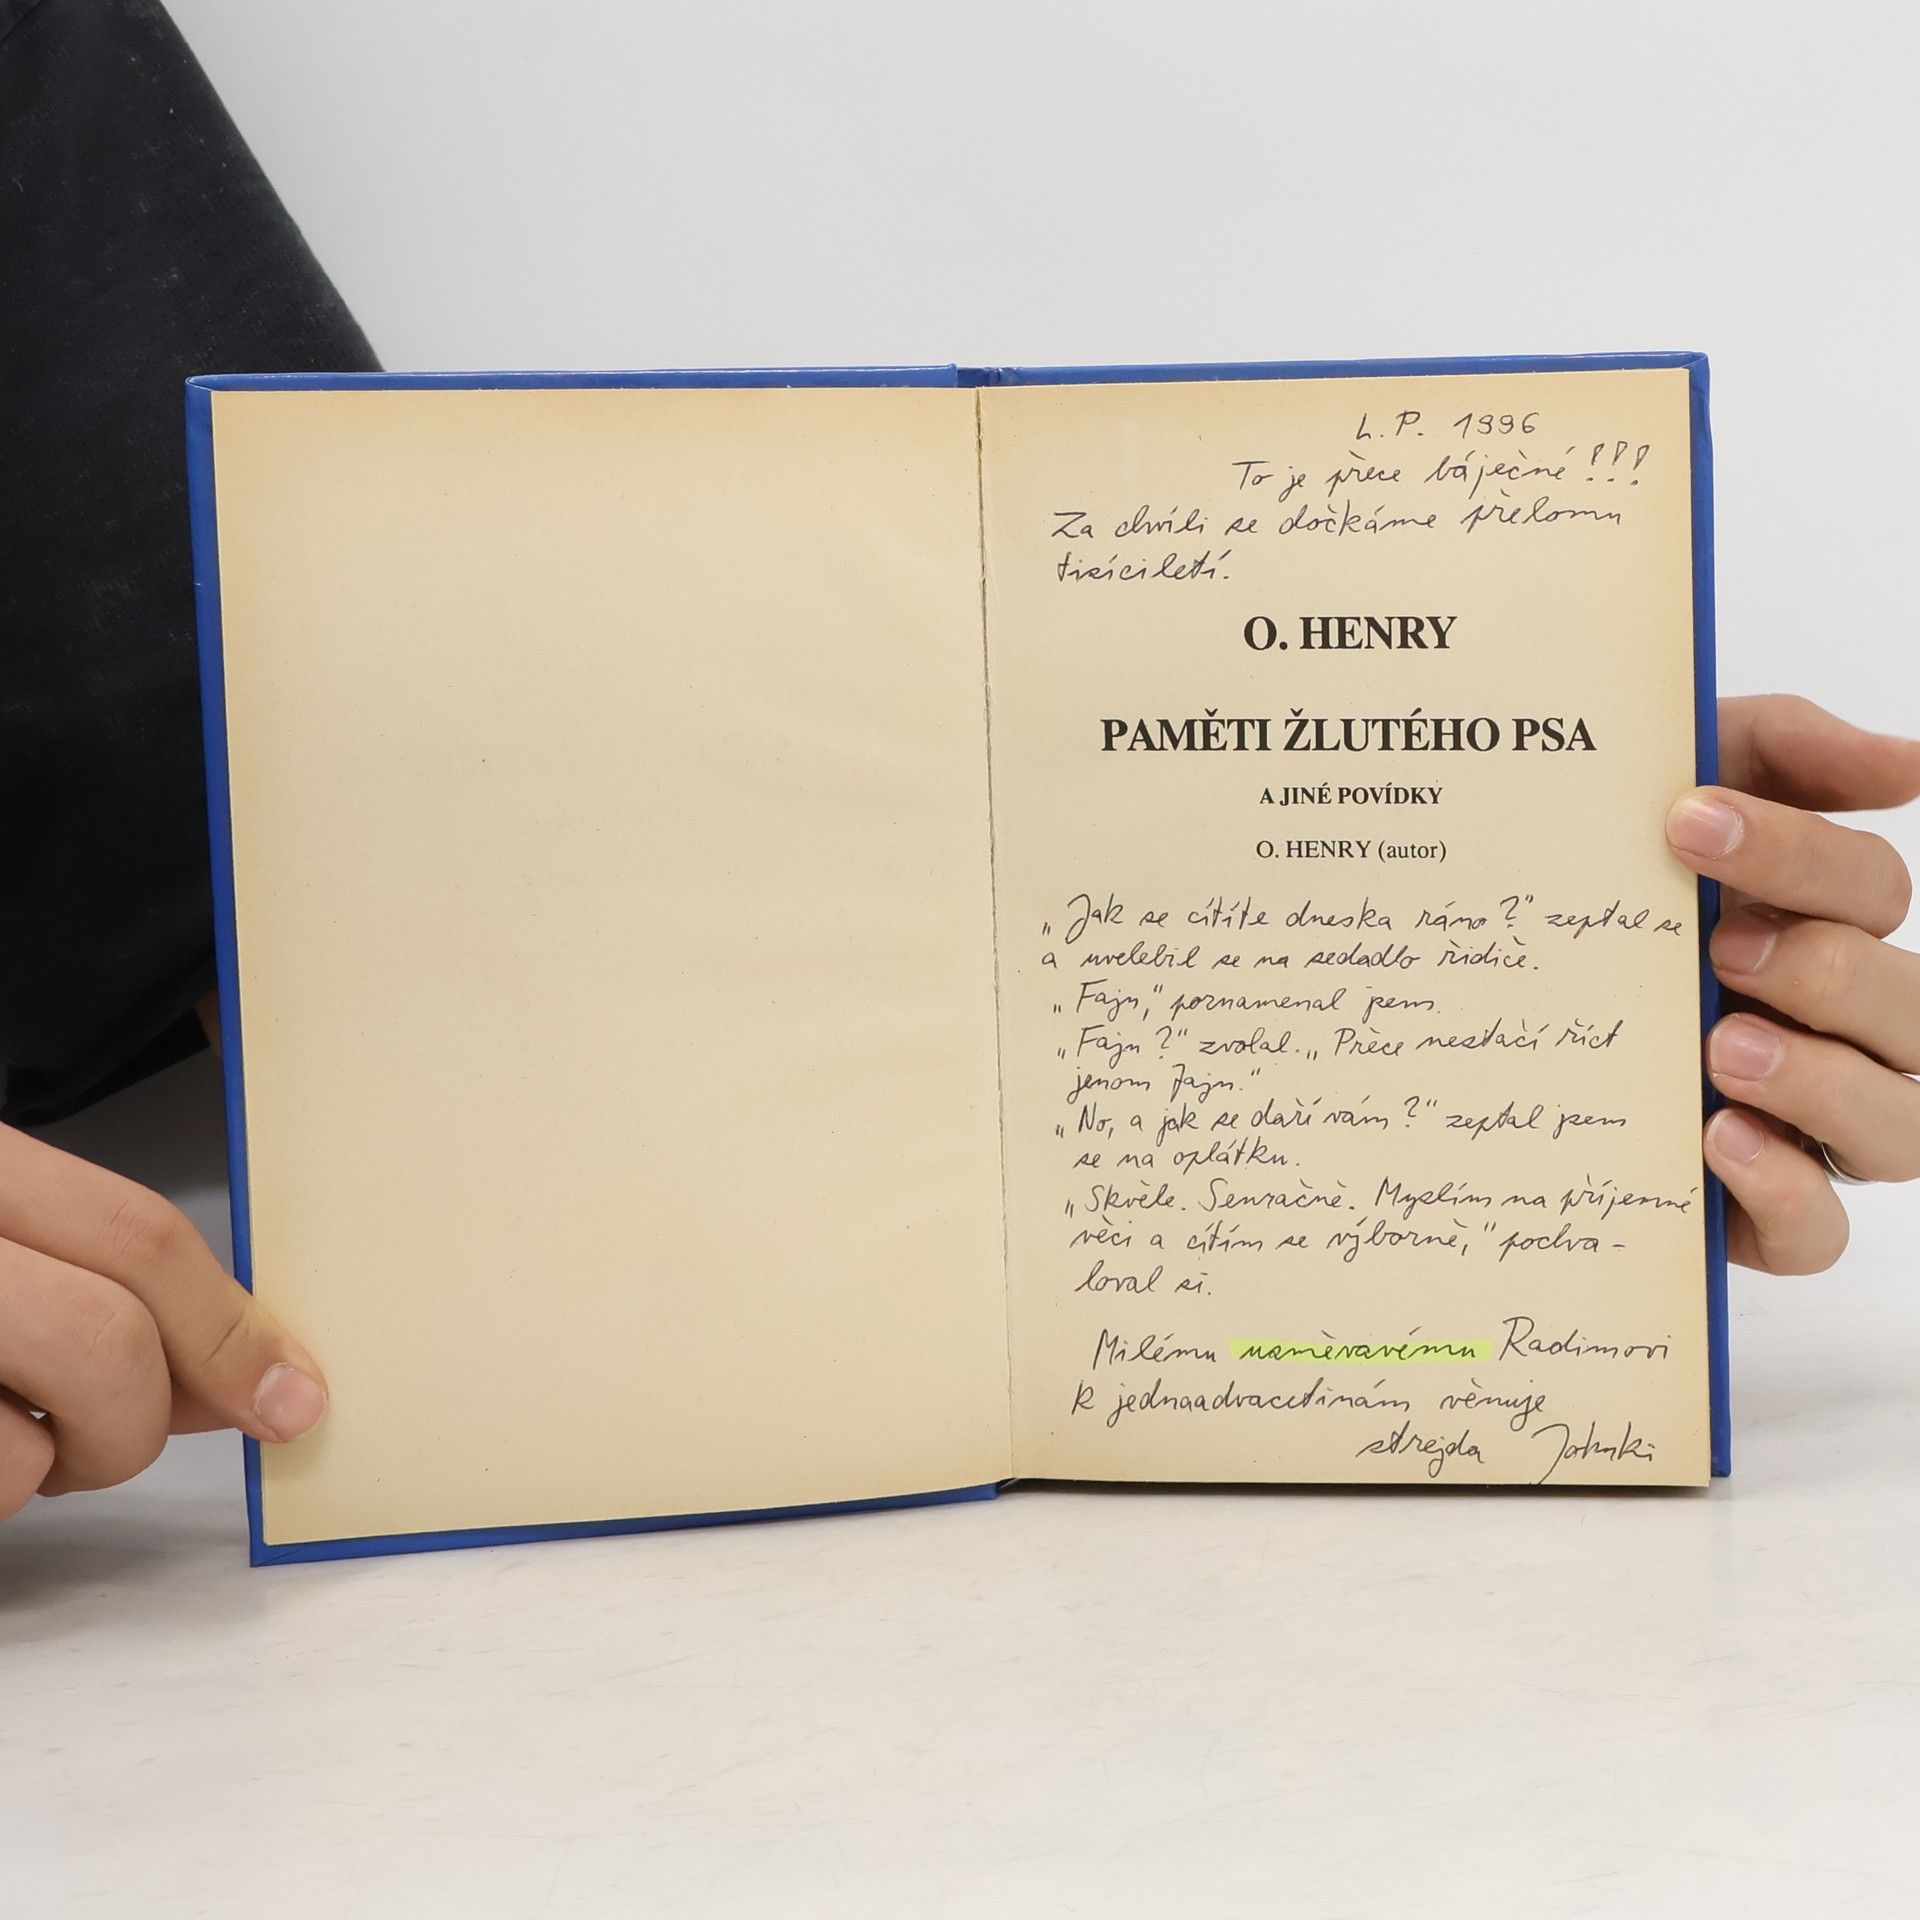 L. P. 1996
To je přece báječné!!!
Za chvíli se dočkáme přelomu
tisíciletí.
O. HENRY
PAMĚTI ŽLUTÉHO PSA
A JINÉ POVÍDKY
O. HENRY (autor)
„Jak se cítíte dneska ráno?" zeptal se
a uvelebil se na sedadlo řidiče.
„Fajn," poznamenal jsem.
„Fajn?" zvolal. „Přece nestačí říct
jenom fajn."
„No, a jak se daří vám?" zeptal jsem
se na oplátku.
„Skvěle. Senzačně. Myslím na příjemné
věci a cítím se výborně," pochva-
loval si.
Milému usměvavému Radimovi
k jednaadvacetinám věnuje
strejda